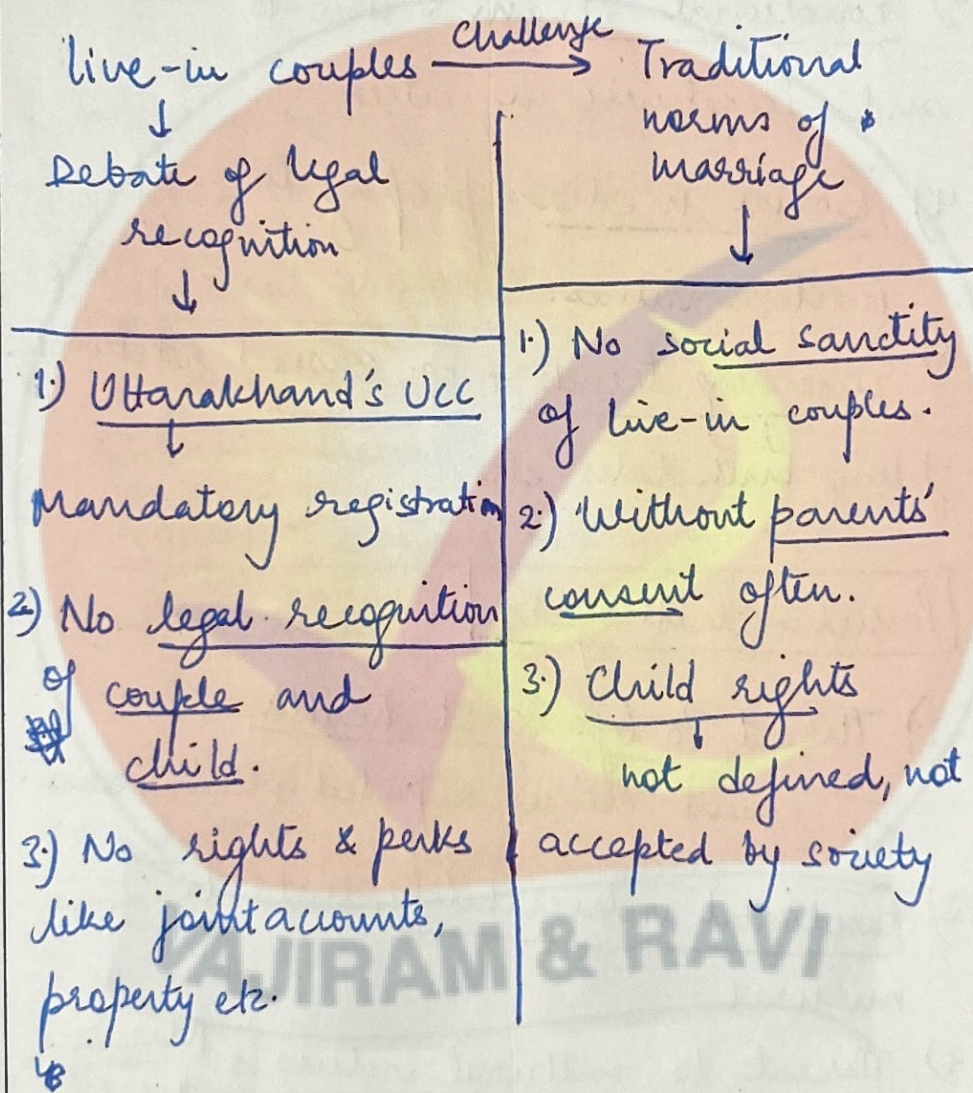 live-in couples
Challenge
Traditional
norms of
marriage
↓
↓
Debate of legal
recognition
↓
1.) Uttarakhand's UCC
↓
Mandatory registration
2) No legal recognition
of couple and
child.
3.) No rights & perks
like joint accounts,
property etc.
1.) No social sanctity
of live-in couples.
2.) Without parents'
consent often.
3.) Child rights
↓
not defined, not
accepted by society
VAJIRAM & RAVI